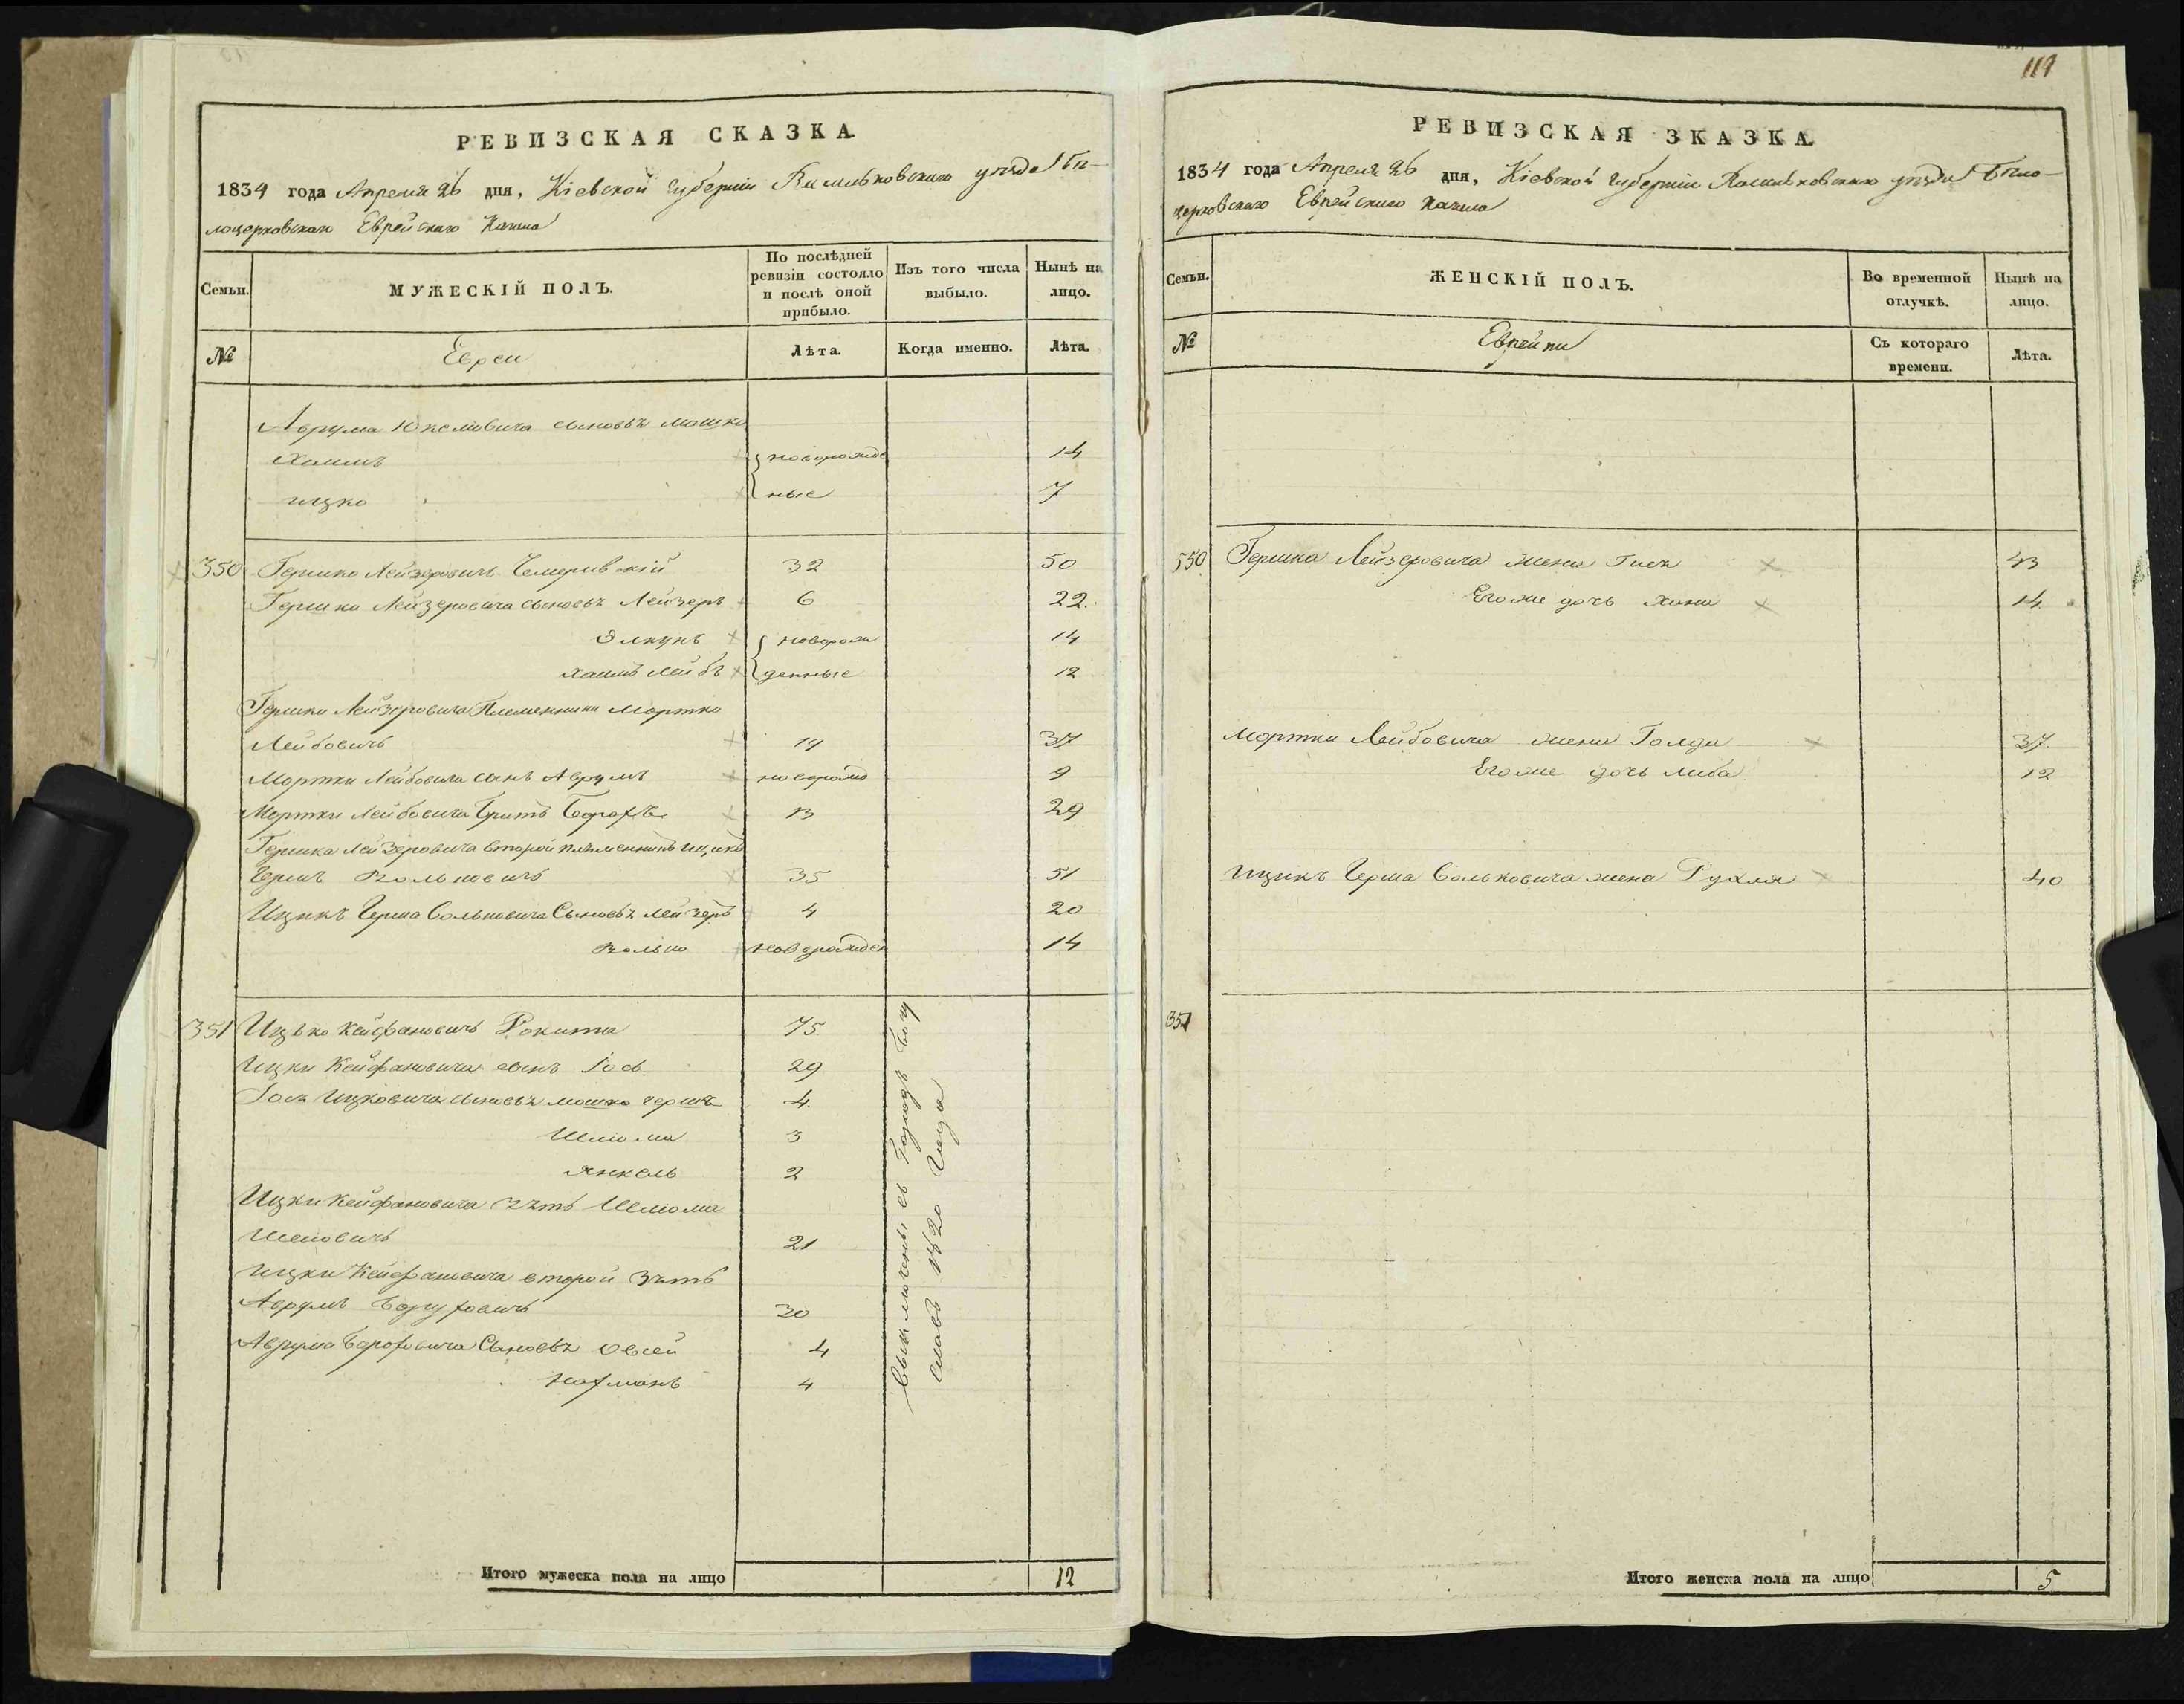 РЕВИЗСКАЯ СКАЗКА.
1834 года Апреля 26 дня, Кіевской губерніи Васильковскаго уезда Бѣ-
лоцерковскаго Еврейскаго Кагала
Семьи.
МУЖЕСКІЙ ПОЛЪ.
По послѣдней ревизіи состояло и послѣ оной прибыло.
Изъ того числа выбыло.
Нынѣ на лицо.
№
Евреи
Лѣта.
Когда именно.
Лѣта.
Аврума Юкелювича сыновья Мошко
Хаимъ новорожде 14
Ицко ные 7
350 Гершко Лейзеровичъ Чемеривскій 32 50
Гершки Лейзеровича сыновья Лейзеръ 6 22
Элкунъ новорож 14
Хаимъ Лейбъ денные 12
Гершки Лейзеровича Племенники Мортко
Лейбовичъ 19 37
Мортки Лейбовича сынъ Аврумъ новорожд 9
Мортки Лейбовича братъ Борохъ 13 29
Гершка Лейзеровича второй племенникъ Ицикъ
Гершъ Вольковичъ 35 51
Ицикъ Герша Вольковича Сыновья Лейзеръ 4 20
Волько новорожден 14
351 Ицько Кейфановичъ Рокита 75
Ицки Кейфановича сынъ Іось 29
Іося Ицковича сыновья Мошко Гершъ 4
Шлиома 3
Янкель 2
Ицки Кейфановича зять Шлиома
21
Ицки Кейфановича второй зять
Аврумъ Борухович 30
Аврума Бороховича Сыновья Овсей 4
Нахманъ 4
Выключены въ Городъ Богу
славъ 1820 года
Итого мужеска пола на лицо 12
119
РЕВИЗСКАЯ ЗКАЗКА.
1834 года Апреля 26 дня, Кіевской губерніи Васильковскаго уезда Бѣло-
церковскаго Еврейскаго Кагала
Семьи.
ЖЕНСКІЙ ПОЛЪ.
Во временной отлучкѣ.
Нынѣ на лицо.
№
Еврейки
Съ котораго времени.
Лѣта.
350 Гершка Лейзеровича жена Гися 43
Его же дочь Хана 14
Мортки Лейбовича жена Голда 37
Его же дочь Либа 12
Ицикъ Герша Вольковича жена Рухля 40
351
Итого женска пола на лицо 5